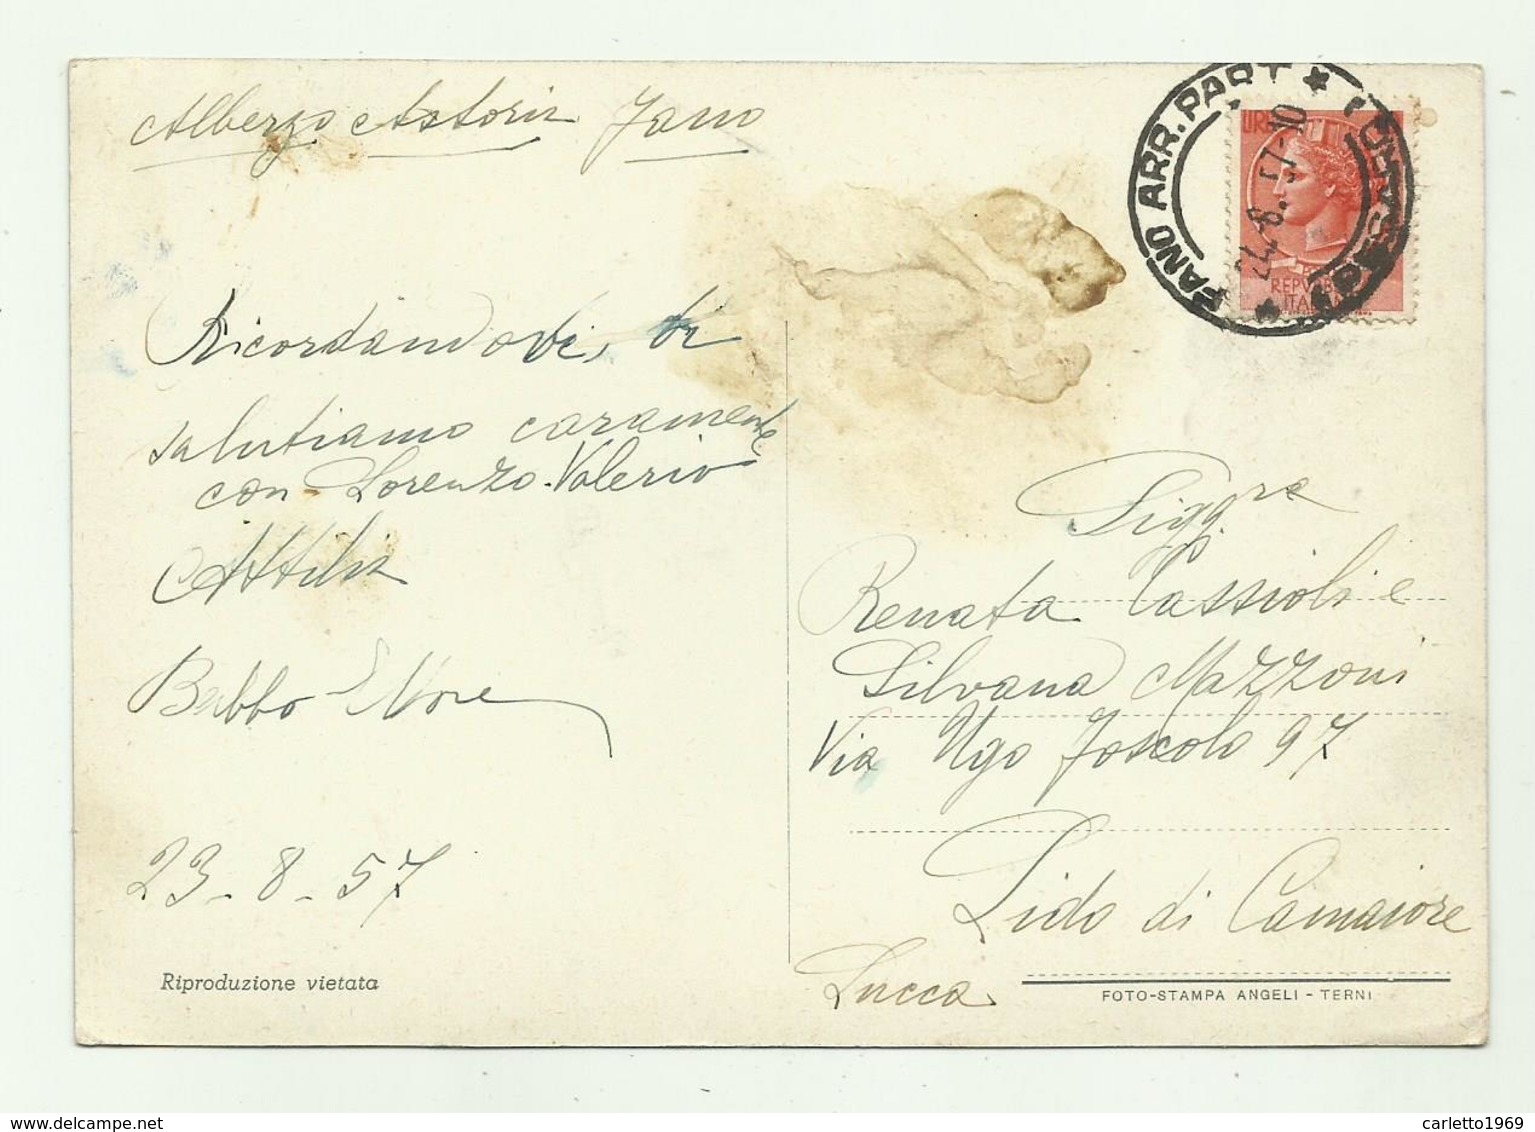 Albergo Astoria Fano
Ricordandovi, vi
salutiamo caramente
con Lorenzo. Valerio
Attilia
Babbo Ettore
23-8-57
Riproduzione vietata
FANO ARR. PART * (PESARO) *
24.8.57-10
REPVBB
ITALIA
Sigg.re
Renata Cassioli e
Silvana Mazzoni
Via Ugo Foscolo 97
Lido di Camaiore
Lucca
FOTO-STAMPA ANGELI - TERNI
carletto1969